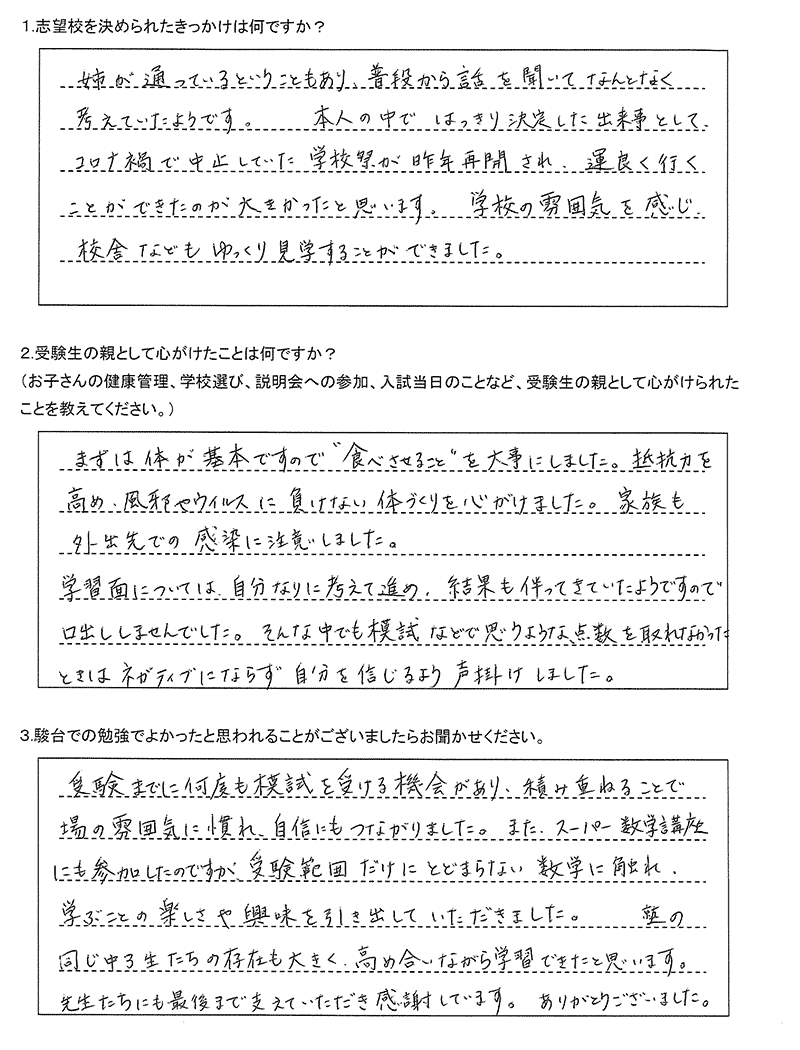 1.志望校を決められたきっかけは何ですか？
姉が通っているということもあり、普段から話を聞いてなんとなく
考えていたようです。　本人の中ではっきり決定した出来事として、
コロナ禍で中止していた学校祭が昨年再開され、運良く行く
ことができたのが大きかったと思います。学校の雰囲気を感じ、
校舎などもゆっくり見学することができました。
2.受験生の親として心がけたことは何ですか？
（お子さんの健康管理、学校選び、説明会への参加、入試当日のことなど、受験生の親として心がけられた
ことを教えてください。）
まずは体が基本ですので“食べさせること”を大事にしました。抵抗力を
高め、風邪やウイルスに負けない体づくりを心がけました。家族も
外出先での感染に注意しました。
学習面については、自分なりに考えて進め、結果も伴ってきていたようですので
口出ししませんでした。そんな中でも模試などで思うような点数を取れなかった
ときはネガティブにならず自分を信じるよう声掛けしました。
3.駿台での勉強でよかったと思われることがございましたらお聞かせください。
受験までに何度も模試を受ける機会があり、積み重ねることで
場の雰囲気に慣れ、自信にもつながりました。また、スーパー数学講座
にも参加したのですが、受験範囲だけにとどまらない数学に触れ、
学ぶことの楽しさや興味を引き出していただきました。　塾の
同じ中3生たちの存在も大きく、高め合いながら学習できたと思います。
先生たちにも最後まで支えていただき感謝しています。ありがとうございました。